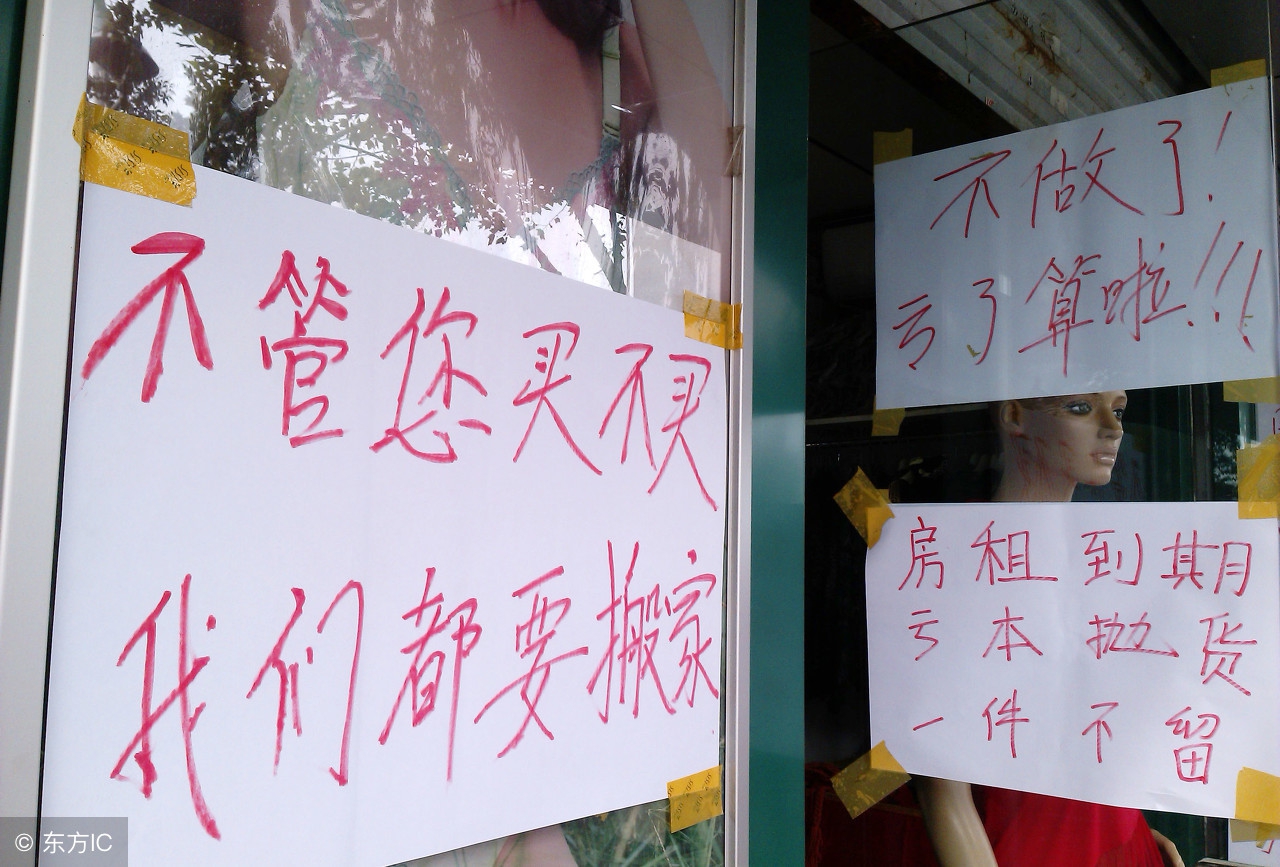 不管您买不买
我们都要搬家
不做了!
亏了算啦!!!
房租到期
亏本抛货
一件不留
© 东方IC